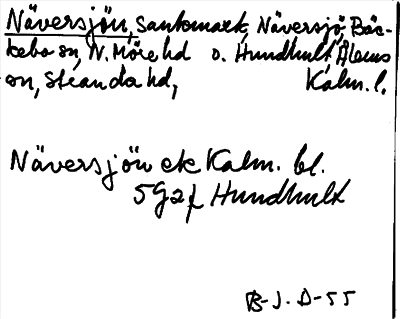 Näversjön, Sankmark, Näversjö, Bäc-
kebo sn, N. Möre hd o. Hundhult, Ålems
sn, Stranda hd, Kalm. l.
Näversjön ek Kalm. bl.
5G2f Hundhult
B-J. D-55